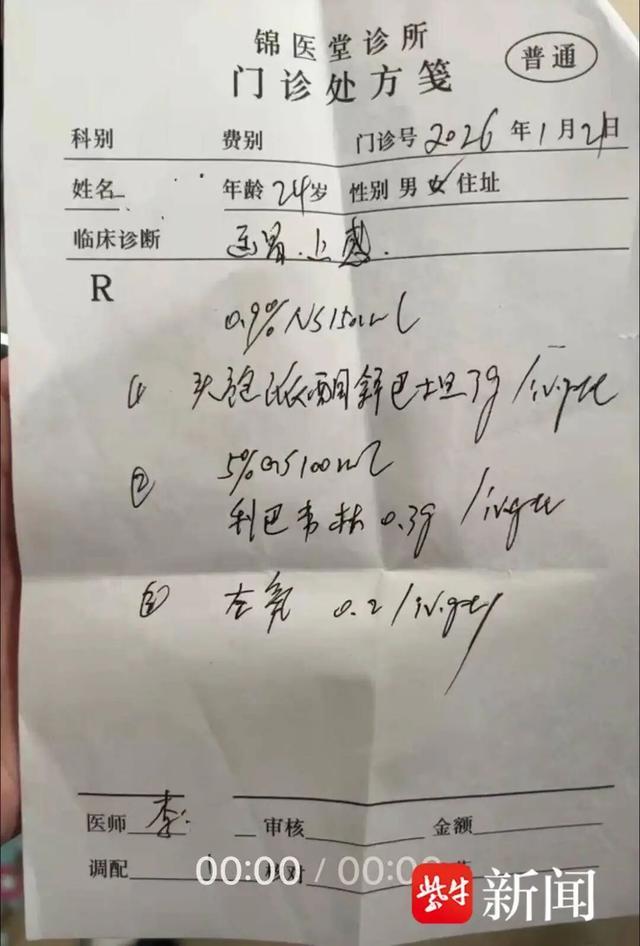 锦医堂诊所
普通
门诊处方笺
科别 费别 门诊号 2026 年 1 月 21 日
姓名 年龄 24 岁 性别 男 女 住址
临床诊断 上感.
R
0.9% NS 150ml
① 头孢哌酮舒巴坦 3g / iv.gtt
② 5% GS 100ml
利巴韦林 0.3g / iv.gtt
③ 左氧 0.2 / iv.gtt
医师 李 审核 金额
调配 核对
00:00 / 00:00
紫牛新闻